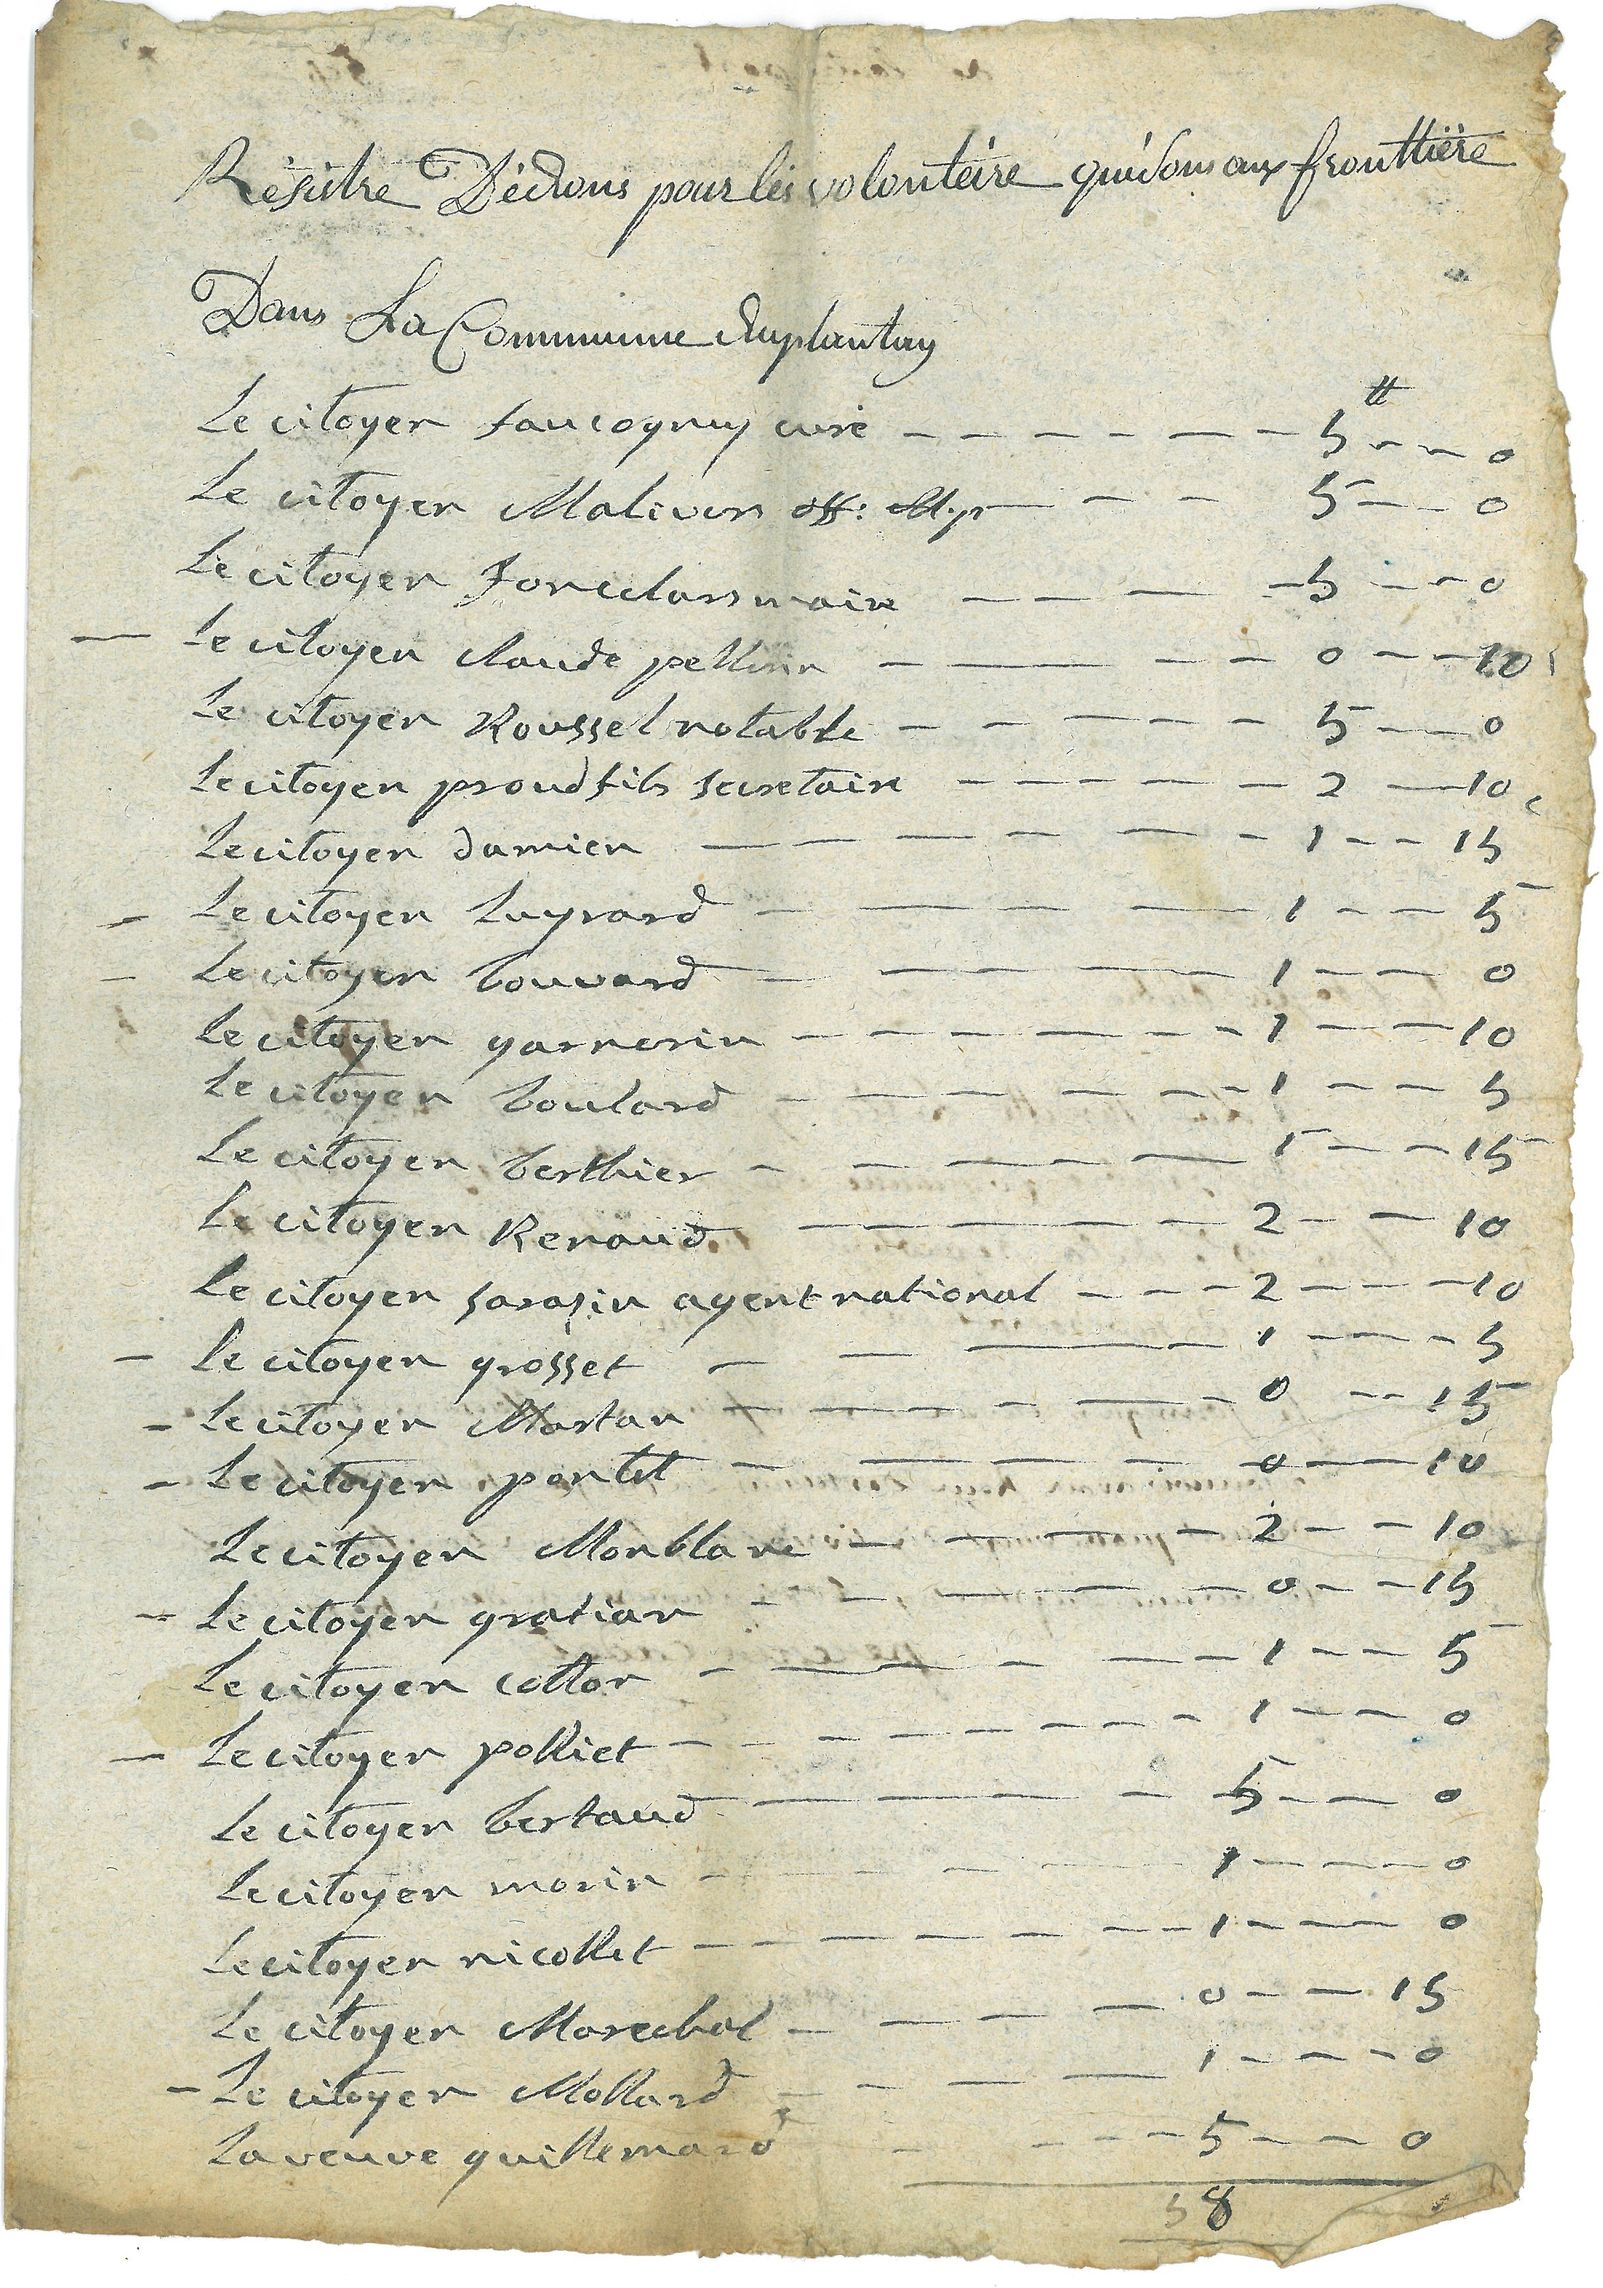 Résitre Dédons pour les volontéire qui sons aux fronttiére
Dans La Commune duplantay
tt
Le citoyen faucogney curé - - - - - - - 5 - - 0
Le citoyen Malivers off: M.pr - - - 5 - - 0
Le citoyen maire - - - - 5 - - - 0
- Le citoyen claude pellerin - - - - 0 - - 10 s
Le citoyen Roussel notable - - - - - - 5 - - 0
Le citoyen proud fils secretaire - - - - - - 2 - 10
Le citoyen damien - - - - - - 1 - - 15
- Le citoyen Luyrard - - - - - 1 - - 5
- Le citoyen bouvard - - - - - 1 - - 0
Le citoyen garnerin - - - - - - - - 1 - - 10
Le citoyen boulard - - - - - - - 1 - - 5
Le citoyen berthier - - - - - 1 - - 15
Le citoyen Renaud - - - - - 2 - - 10
Le citoyen sarazin agent national - - - - 2 - - - 10
- Le citoyen grosset - - - - 1 - - - - 5
- Le citoyen Martan - - - - - - 0 - - 15
- Le citoyen pontet - - - - - 0 - - 10
Le citoyen Monblanc - - - - - 2 - - 10
- Le citoyen gratian - - - - - - 0 - - 15
Le citoyen cotton - - - - - - 1 - - 5
- Le citoyen polliet - - - - - - - - 1 - - - 0
Le citoyen bertaud - - - - - 5 - - - 0
Le citoyen morin - - - - - 1 - - - - 0
Le citoyen nicollet - - - - - - - 1 - - - - 0
Le citoyen Marechal - - - - 0 - - - 15
- Le citoyen Mollard - - - - 1 - - - - 0
La veuve guillemard - - - - 5 - - - 0
58